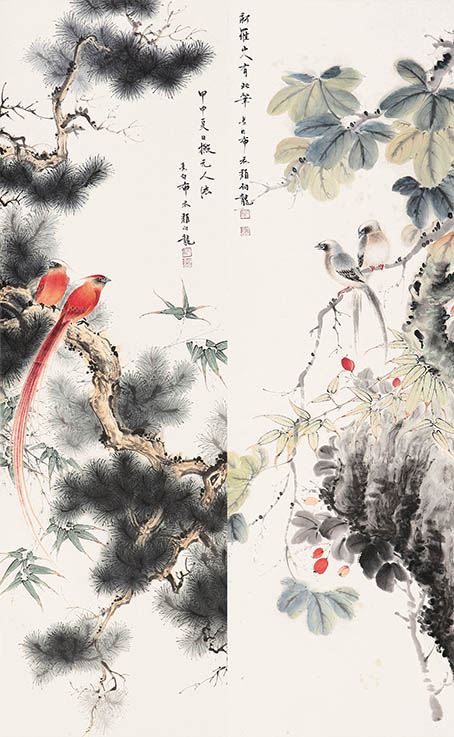 新羅山人有此筆長白布衣顏伯龍
甲申夏日撫元人法
長白布衣顏伯龍